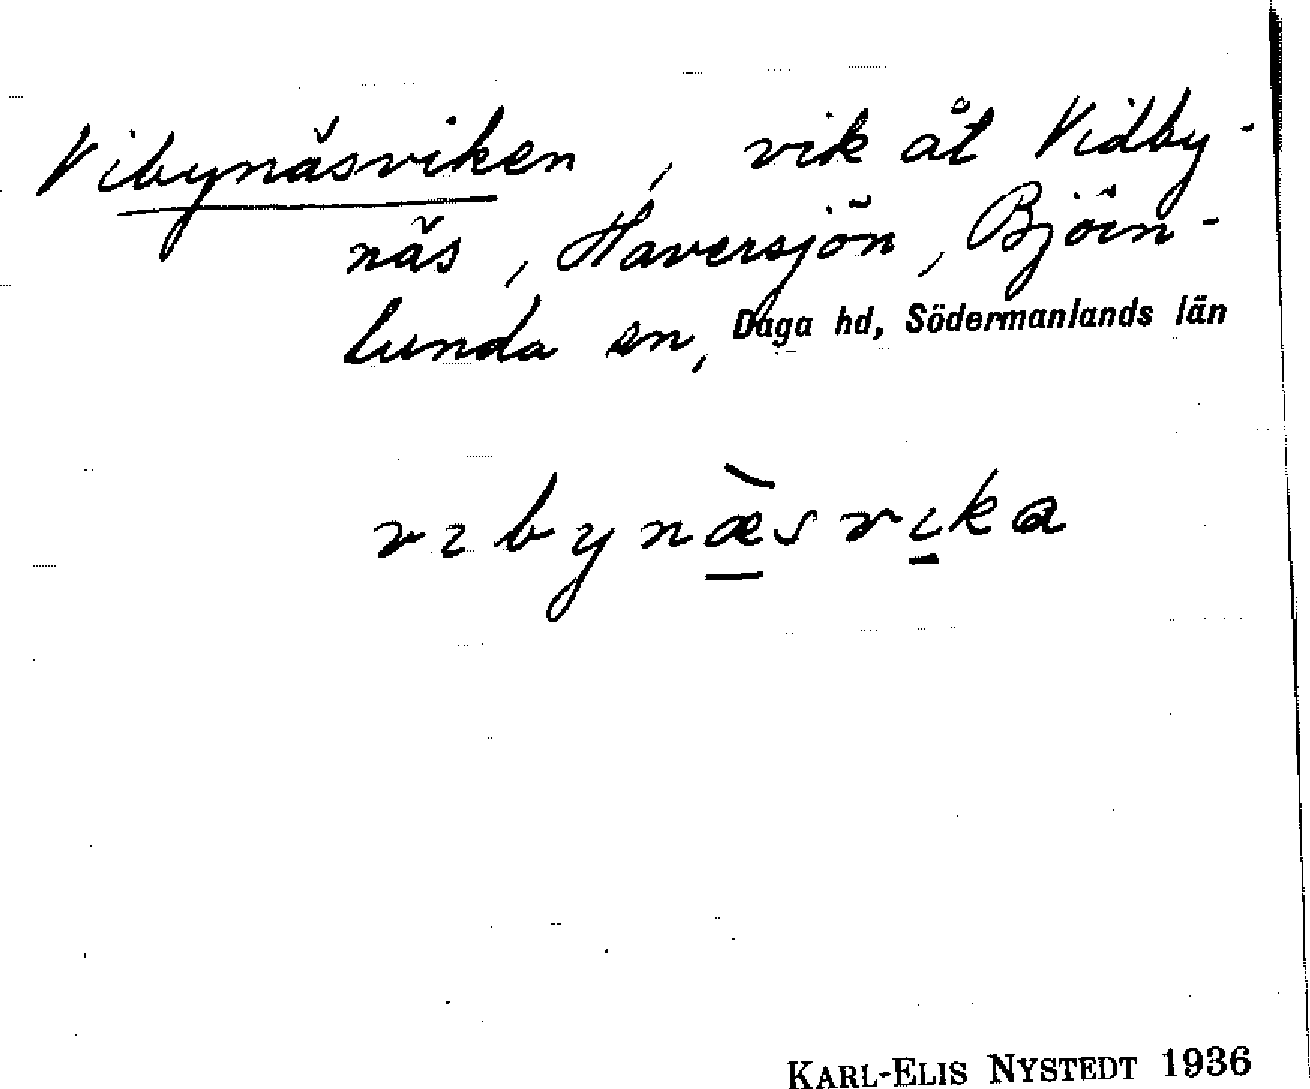 Vibynäsviken, vik åt Vidby-
näs, Haversjön, Björn-
lunda sn, Daga hd, Södermanlands län
vıbynæ̀svıka
KARL-ELIS NYSTEDT 1936